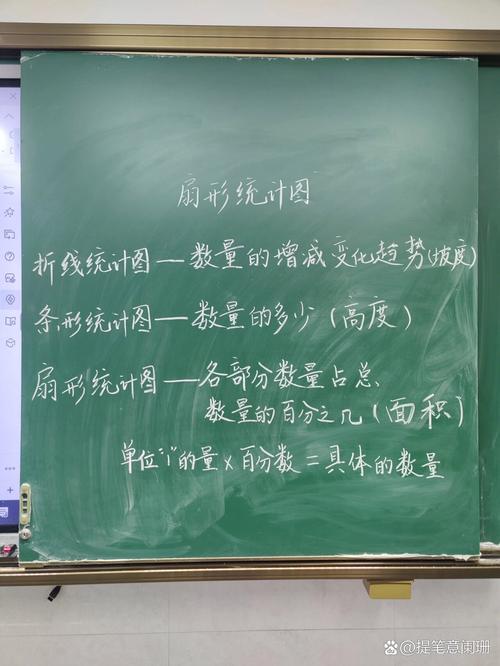 扇形统计图
折线统计图—数量的增减变化趋势(坡度)
条形统计图—数量的多少(高度)
扇形统计图—各部分数量占总
数量的百分之几(面积)
单位"1"的量×百分数=具体的数量
@提笔意阑珊